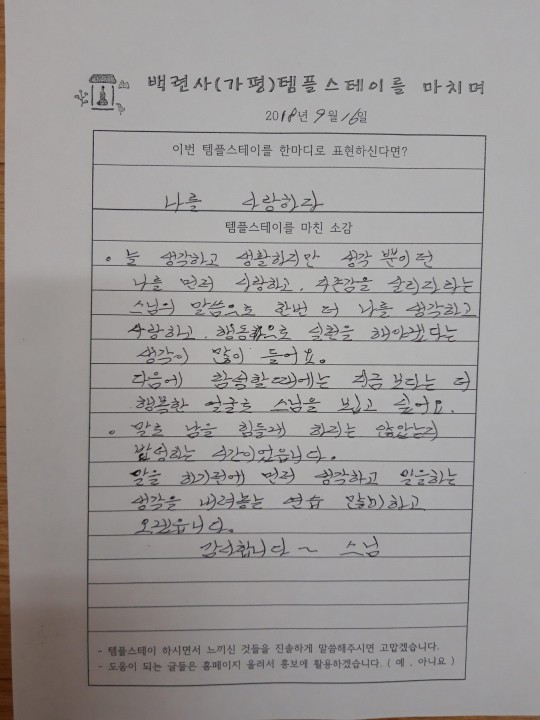 백련사(가평)템플스테이를 마치며
2018년 9월 16일
이번 템플스테이를 한마디로 표현하신다면?
나를 사랑하라
템플스테이를 마친 소감
◦ 늘 생각하고 생활하지만 생각 뿐이던
나를 먼저 사랑하고, 자존감을 살리라는
스님의 말씀으로 한번 더 나를 생각하고
사랑하고, 행동으로 실환을 해야겠다는
생각이 많이 들어요.
다음에 참석할때에는 지금 보다는 더
행복한 얼굴로 스님을 뵙고 싶어요.
◦ 말로 남을 힘들게 하지는 않았는지
반성하는 시간이었읍니다.
말을 하기전에 먼저 생각하고 말을하는
생각을 내려놓는 연습 많이하고
오겠읍니다.
감사합니다 ~ 스님
- 템플스테이 하시면서 느끼신 것들을 진솔하게 말씀해주시면 고맙겠습니다.
- 도움이 되는 글들은 홈페이지 올려서 홍보에 활용하겠습니다. ( 예 , 아니요 )